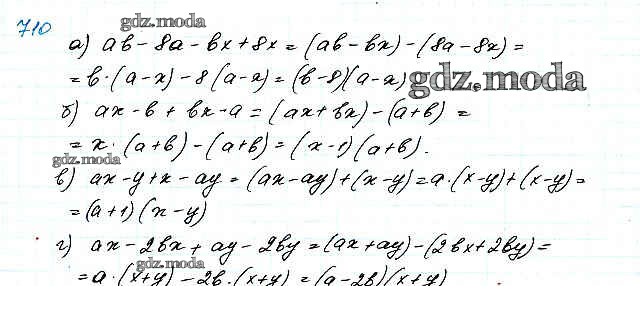 710
gdz.moda
а) ab - 8a - bx + 8x = (ab - bx) - (8a - 8x) =
= b·(a-x) - 8(a-x) = (b-8)(a-x)
gdz.moda
б) ax - b + bx - a = (ax + bx) - (a+b) =
= x·(a+b) - (a+b) = (x-1)(a+b).
gdz.moda
в) ax - y + x - ay = (ax - ay) + (x-y) = a·(x-y) + (x-y) =
= (a+1)(x-y)
г) ax - 2bx + ay - 2by = (ax + ay) - (2bx + 2by) =
gdz.moda
= a·(x+y) - 2b·(x+y) = (a-2b)(x+y)